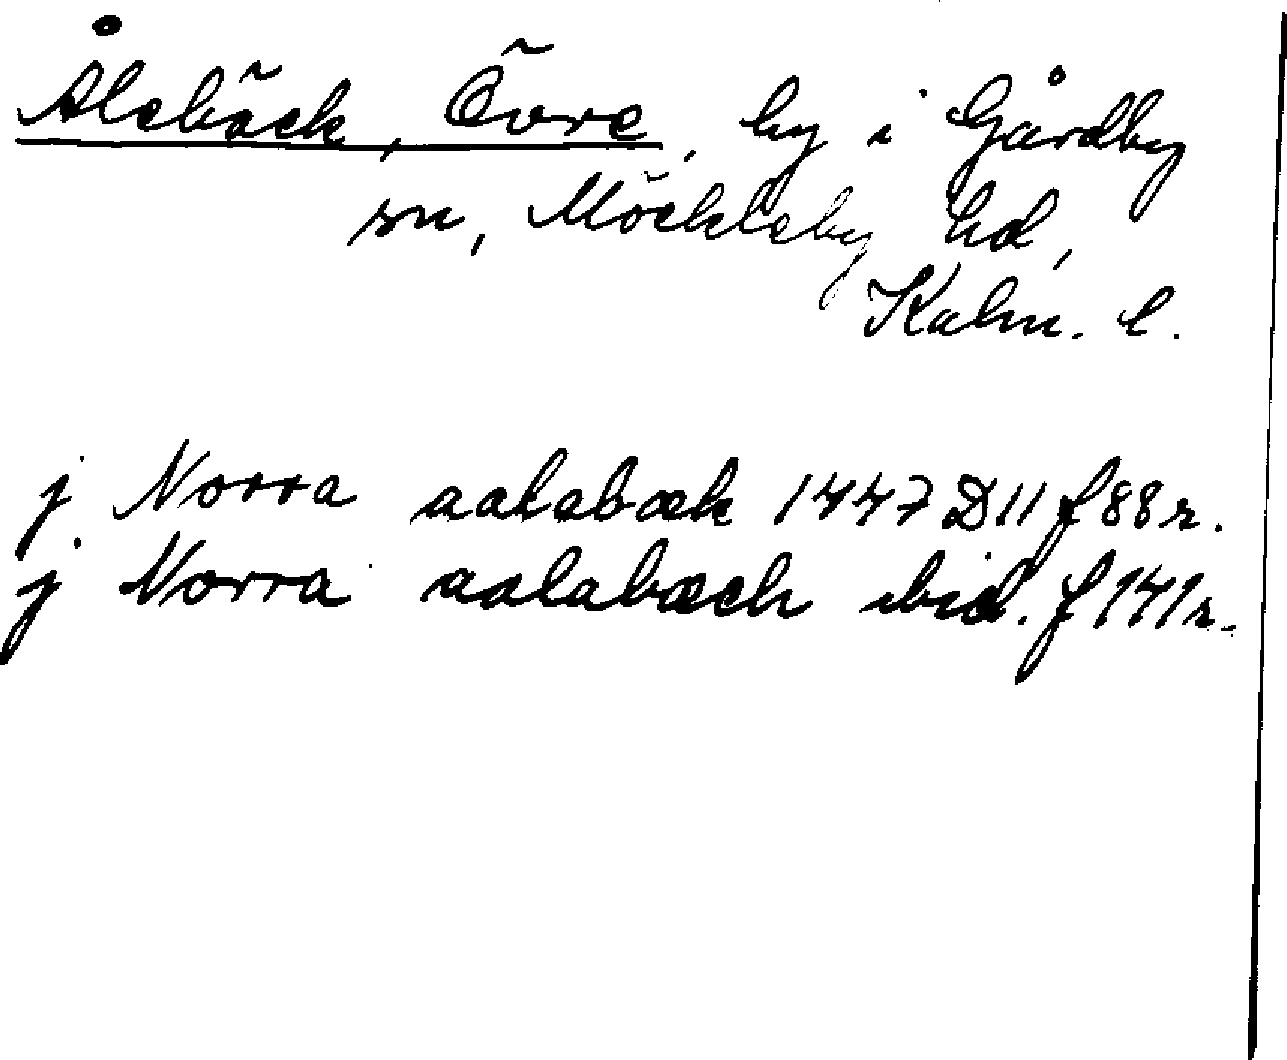 Ålebäck, Övre, by i Gårdby
sn, Möckleby hd,
Kalm. l.
j Norra aalebæk 1447 D11 f 88 r.
j Norra aalabæch ibid. f 141 r.